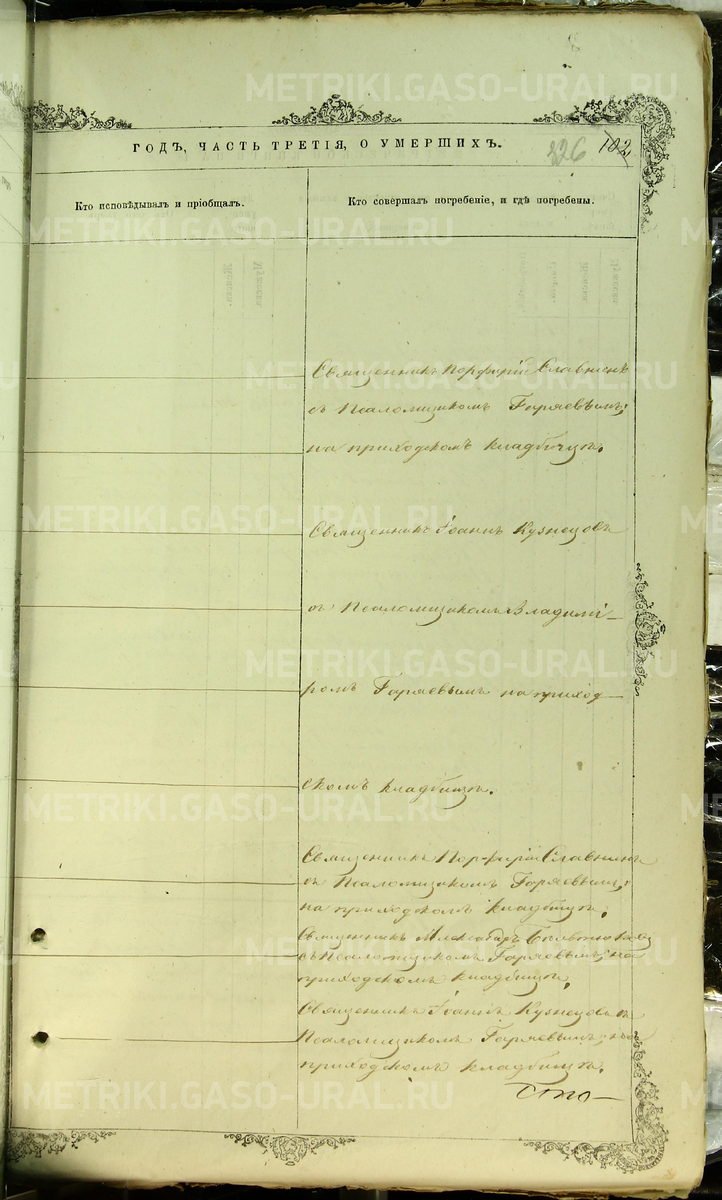 ГОДЪ, ЧАСТЬ ТРЕТІЯ, О УМЕРШИХЪ.
226 102
Кто исповѣдывалъ и пріобщалъ.
Кто совершалъ погребеніе, и гдѣ погребены.
Священникъ Порфирій Славнинъ
съ Псаломщикомъ Горяевымъ;
на приходскомъ кладбищѣ.
Священникъ Іоаннъ Кузнецовъ
съ Псаломщикомъ Владимі-
ромъ Горяевымъ на приход-
скомъ кладбищѣ.
Священникъ Порфирій Славнинъ
съ Псаломщикомъ Горяевымъ;
на приходскомъ кладбищѣ.
Священникъ Александръ
съ Псаломщикомъ Горяевымъ; на
приходскомъ кладбищѣ.
Священникъ Іоаннъ Кузнецовъ съ
Псаломщикомъ Горяевымъ; на
приходскомъ кладбищѣ.
METRIKI.GASO-URAL.RU